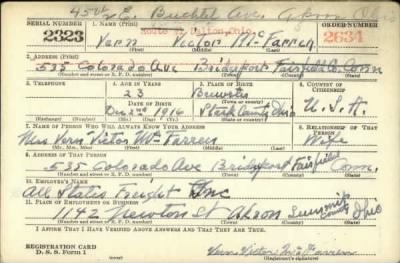 45 1/2 E. Buchtel Ave. Akron Ohio
SERIAL NUMBER 1. NAME (Print) Route #1 Dalton, Ohio. ORDER NUMBER
2323 Vern Victor McFarren 2634
(First) (Middle) (Last)
2. ADDRESS (Print)
535 Colorado Ave Bridgeport Fairfield Co. Conn
(Number and street or R. F. D. number) (Town) (County) (State)
3. TELEPHONE 4. AGE IN YEARS 5. PLACE OF BIRTH 6. COUNTRY OF CITIZENSHIP
23 Brewster
DATE OF BIRTH (Town or county)
Dec 2nd 1916 Stark County Ohio U. S. A.
(Exchange) (Number) (Mo.) (Day) (Yr.) (State or country)
7. NAME OF PERSON WHO WILL ALWAYS KNOW YOUR ADDRESS 8. RELATIONSHIP OF THAT PERSON
Mrs Vern Victor McFarren Wife
(Mr., Mrs., Miss) (First) (Middle) (Last)
9. ADDRESS OF THAT PERSON
535 Colorado Ave Bridgeport Fairfield Conn.
(Number and street or R. F. D. number) (Town) (County) (State)
10. EMPLOYER'S NAME
All States Freight Inc
11. PLACE OF EMPLOYMENT OR BUSINESS
1142 Newton St Akron Summit County Ohio
(Number and street or R. F. D. number) (Town) (County) (State)
I AFFIRM THAT I HAVE VERIFIED ABOVE ANSWERS AND THAT THEY ARE TRUE.
REGISTRATION CARD
D. S. S. Form 1 Vern Victor McFarren
(Registrant's signature)